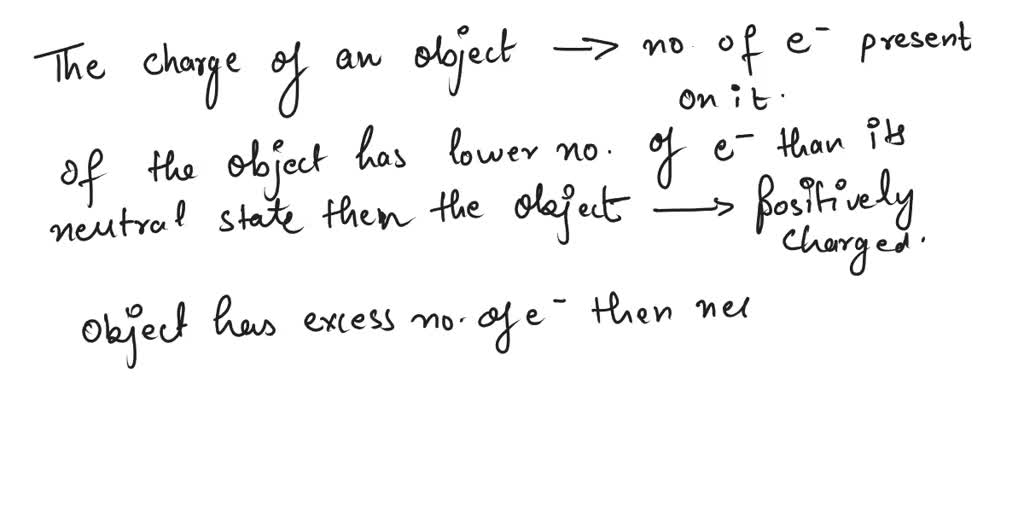 The charge of an object → no of e⁻ present
on it.
If the object has lower no. of e⁻ than its
neutral state then the object → positively
charged.
object has excess no. of e⁻ then neu